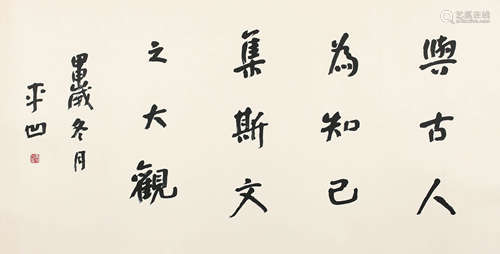 與古人
為知己
集斯文
之大觀
甲申歲冬月
平凹